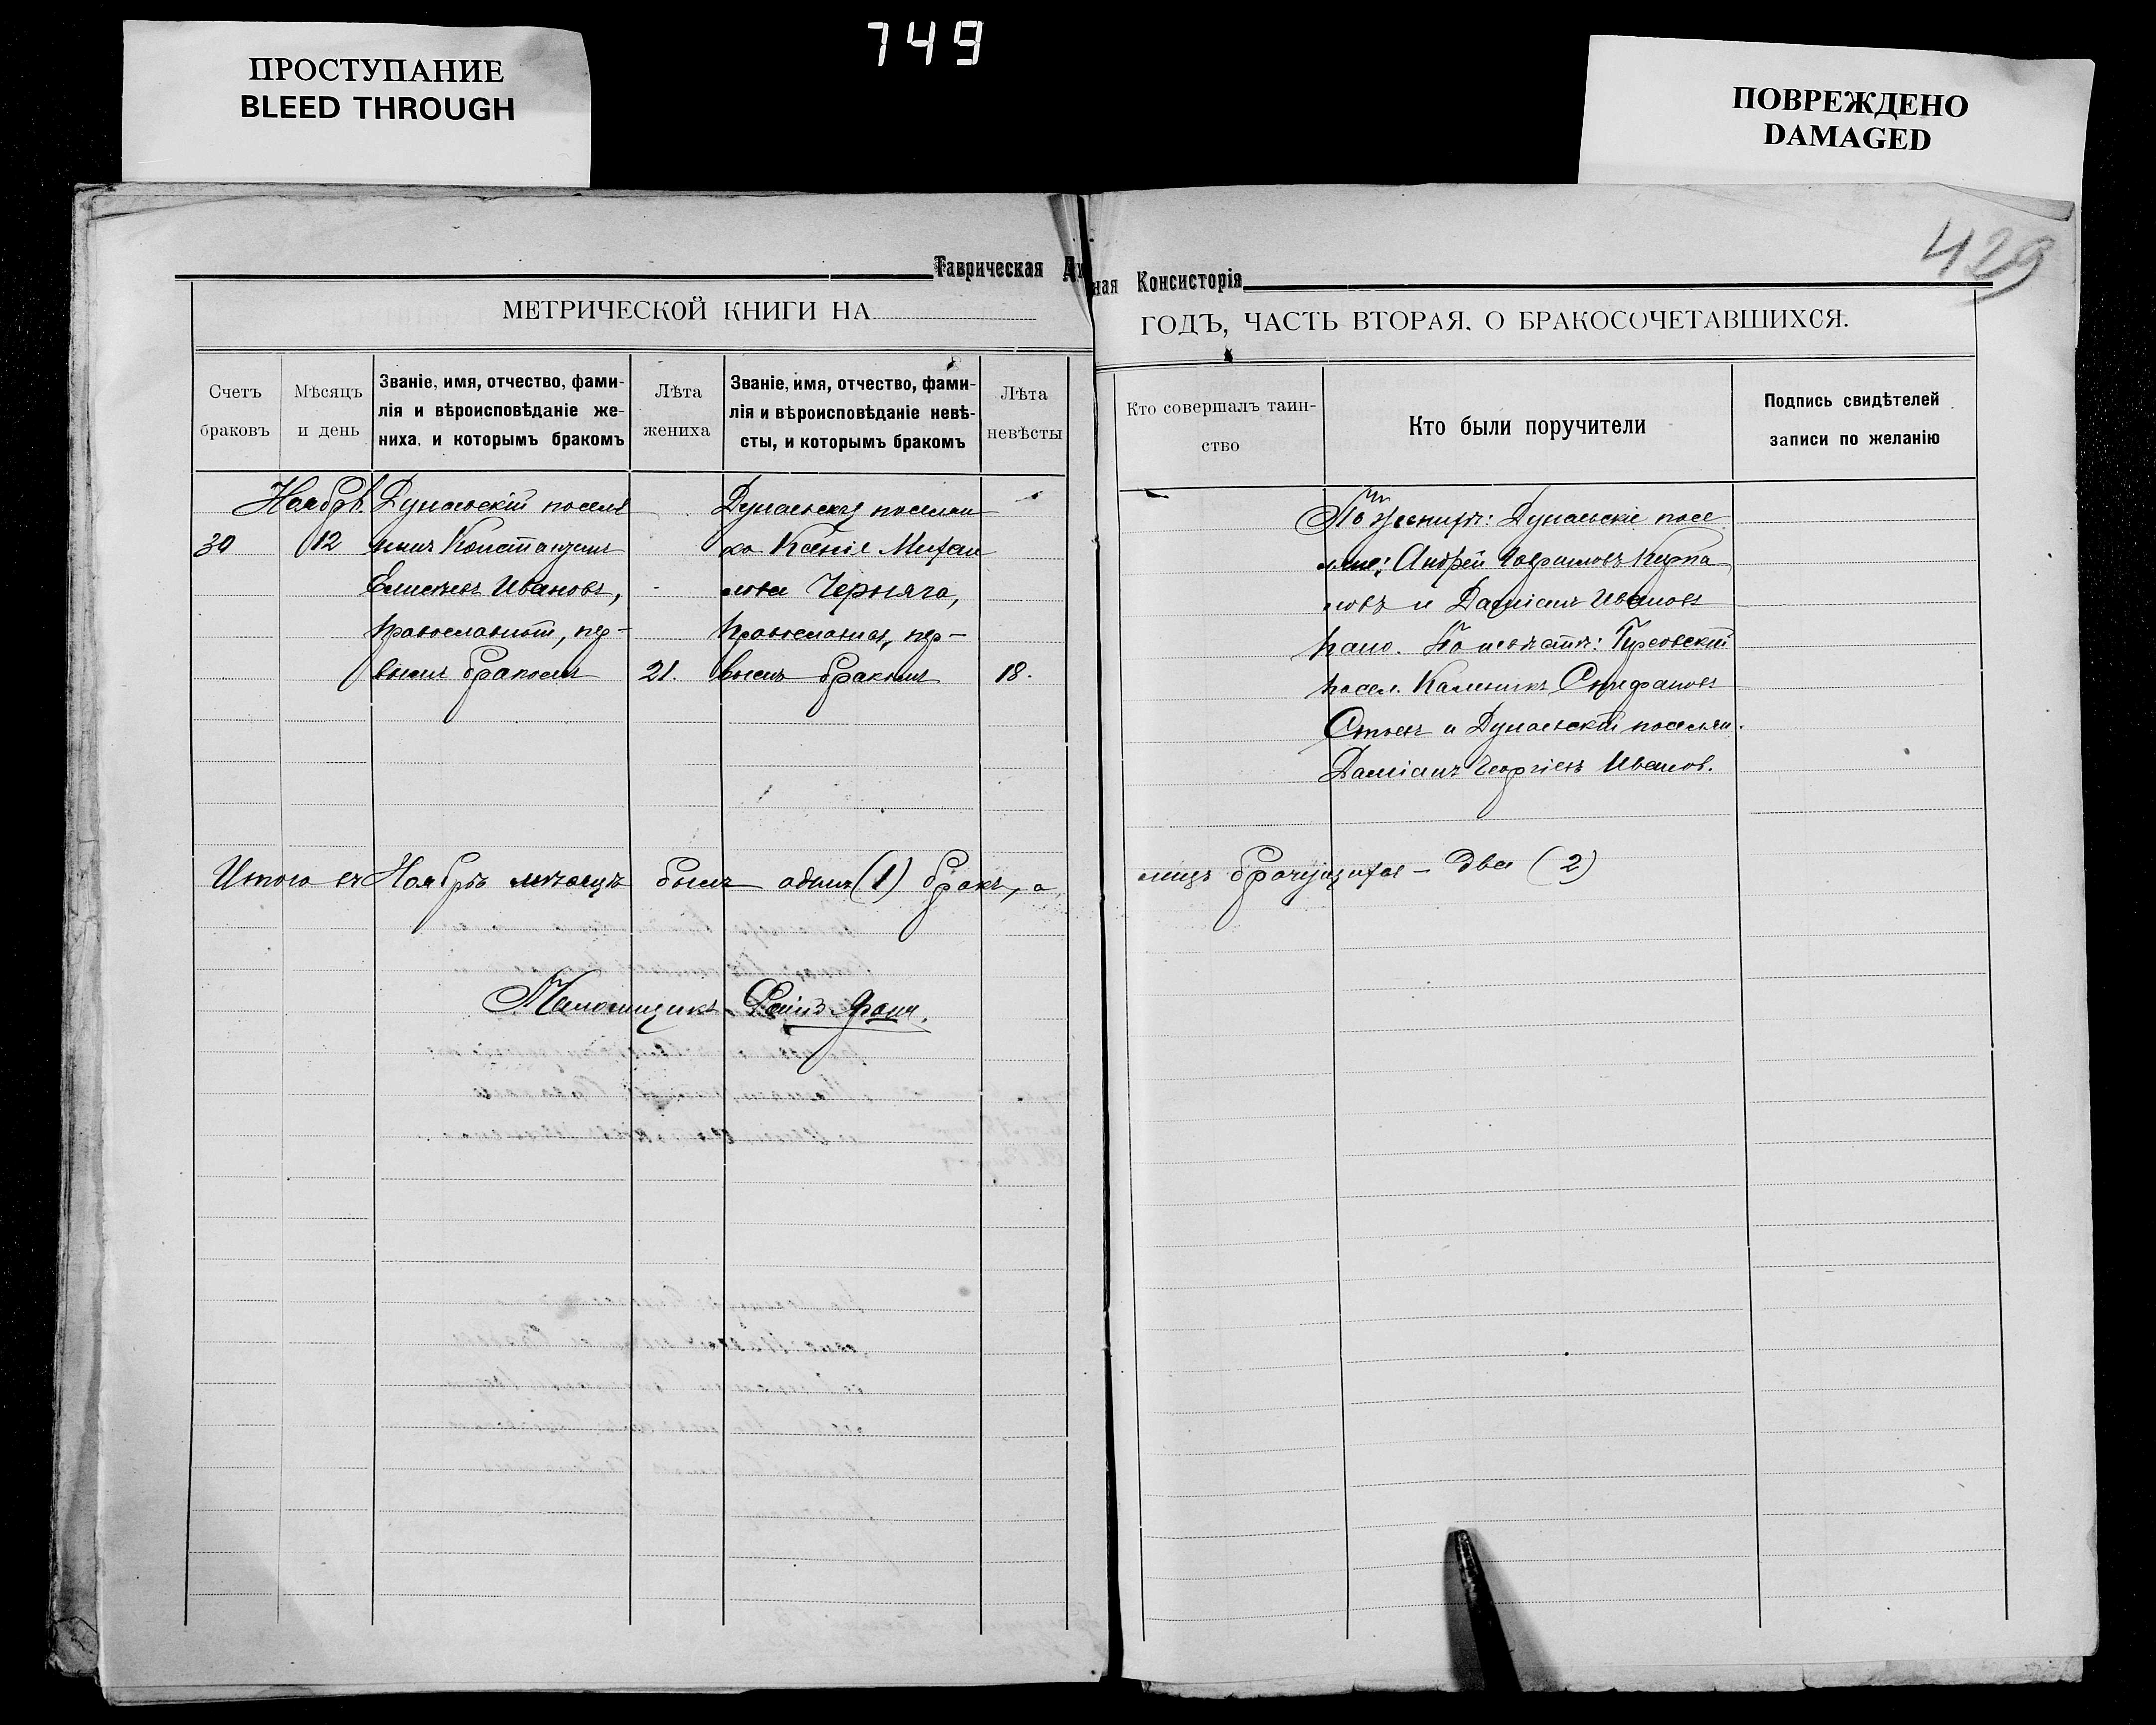 749
ПРОСТУПАНИЕ
BLEED THROUGH
ПОВРЕЖДЕНО
DAMAGED
429
Таврическая Ду
ная Консисторія
МЕТРИЧЕСКОЙ КНИГИ НА
ГОДЪ, ЧАСТЬ ВТОРАЯ, О БРАКОСОЧЕТАВШИХСЯ.
Счетъ
браковъ
Мѣсяцъ
и день
Званіе, имя, отчество, фами-
лія и вѣроисповѣданіе же-
ниха, и которымъ бракомъ
Лѣта
жениха
Званіе, имя, отчество, фами-
лія и вѣроисповѣданіе невѣ-
сты, и которымъ бракомъ
Лѣта
невѣсты
Кто совершалъ таин-
ство
Кто были поручители
Подпись свидѣтелей
записи по желанію
Ноябрь.
12
Дунаевскій поселя
нинъ Константинъ
Елисѣевъ Ивановъ,
православный, пер-
вымъ бракомъ
21.
Дунаевская поселян
ка Ксенія Михаи
лова Черняга,
православная, пер-
вымъ бракомъ
18.
По женихѣ: Дунаевскіе посе
ляне: Андрей Гавриловъ
новъ и Даміанъ Ивановъ
По невѣстѣ:
посел. Стефановъ
Стоевъ и Дунаевскій поселян.
Даміанъ Георгіевъ Иванов.
Итого въ Ноябрѣ мѣсяцѣ былъ одинъ (1) бракъ, а
лицъ брачущихся – два (2)